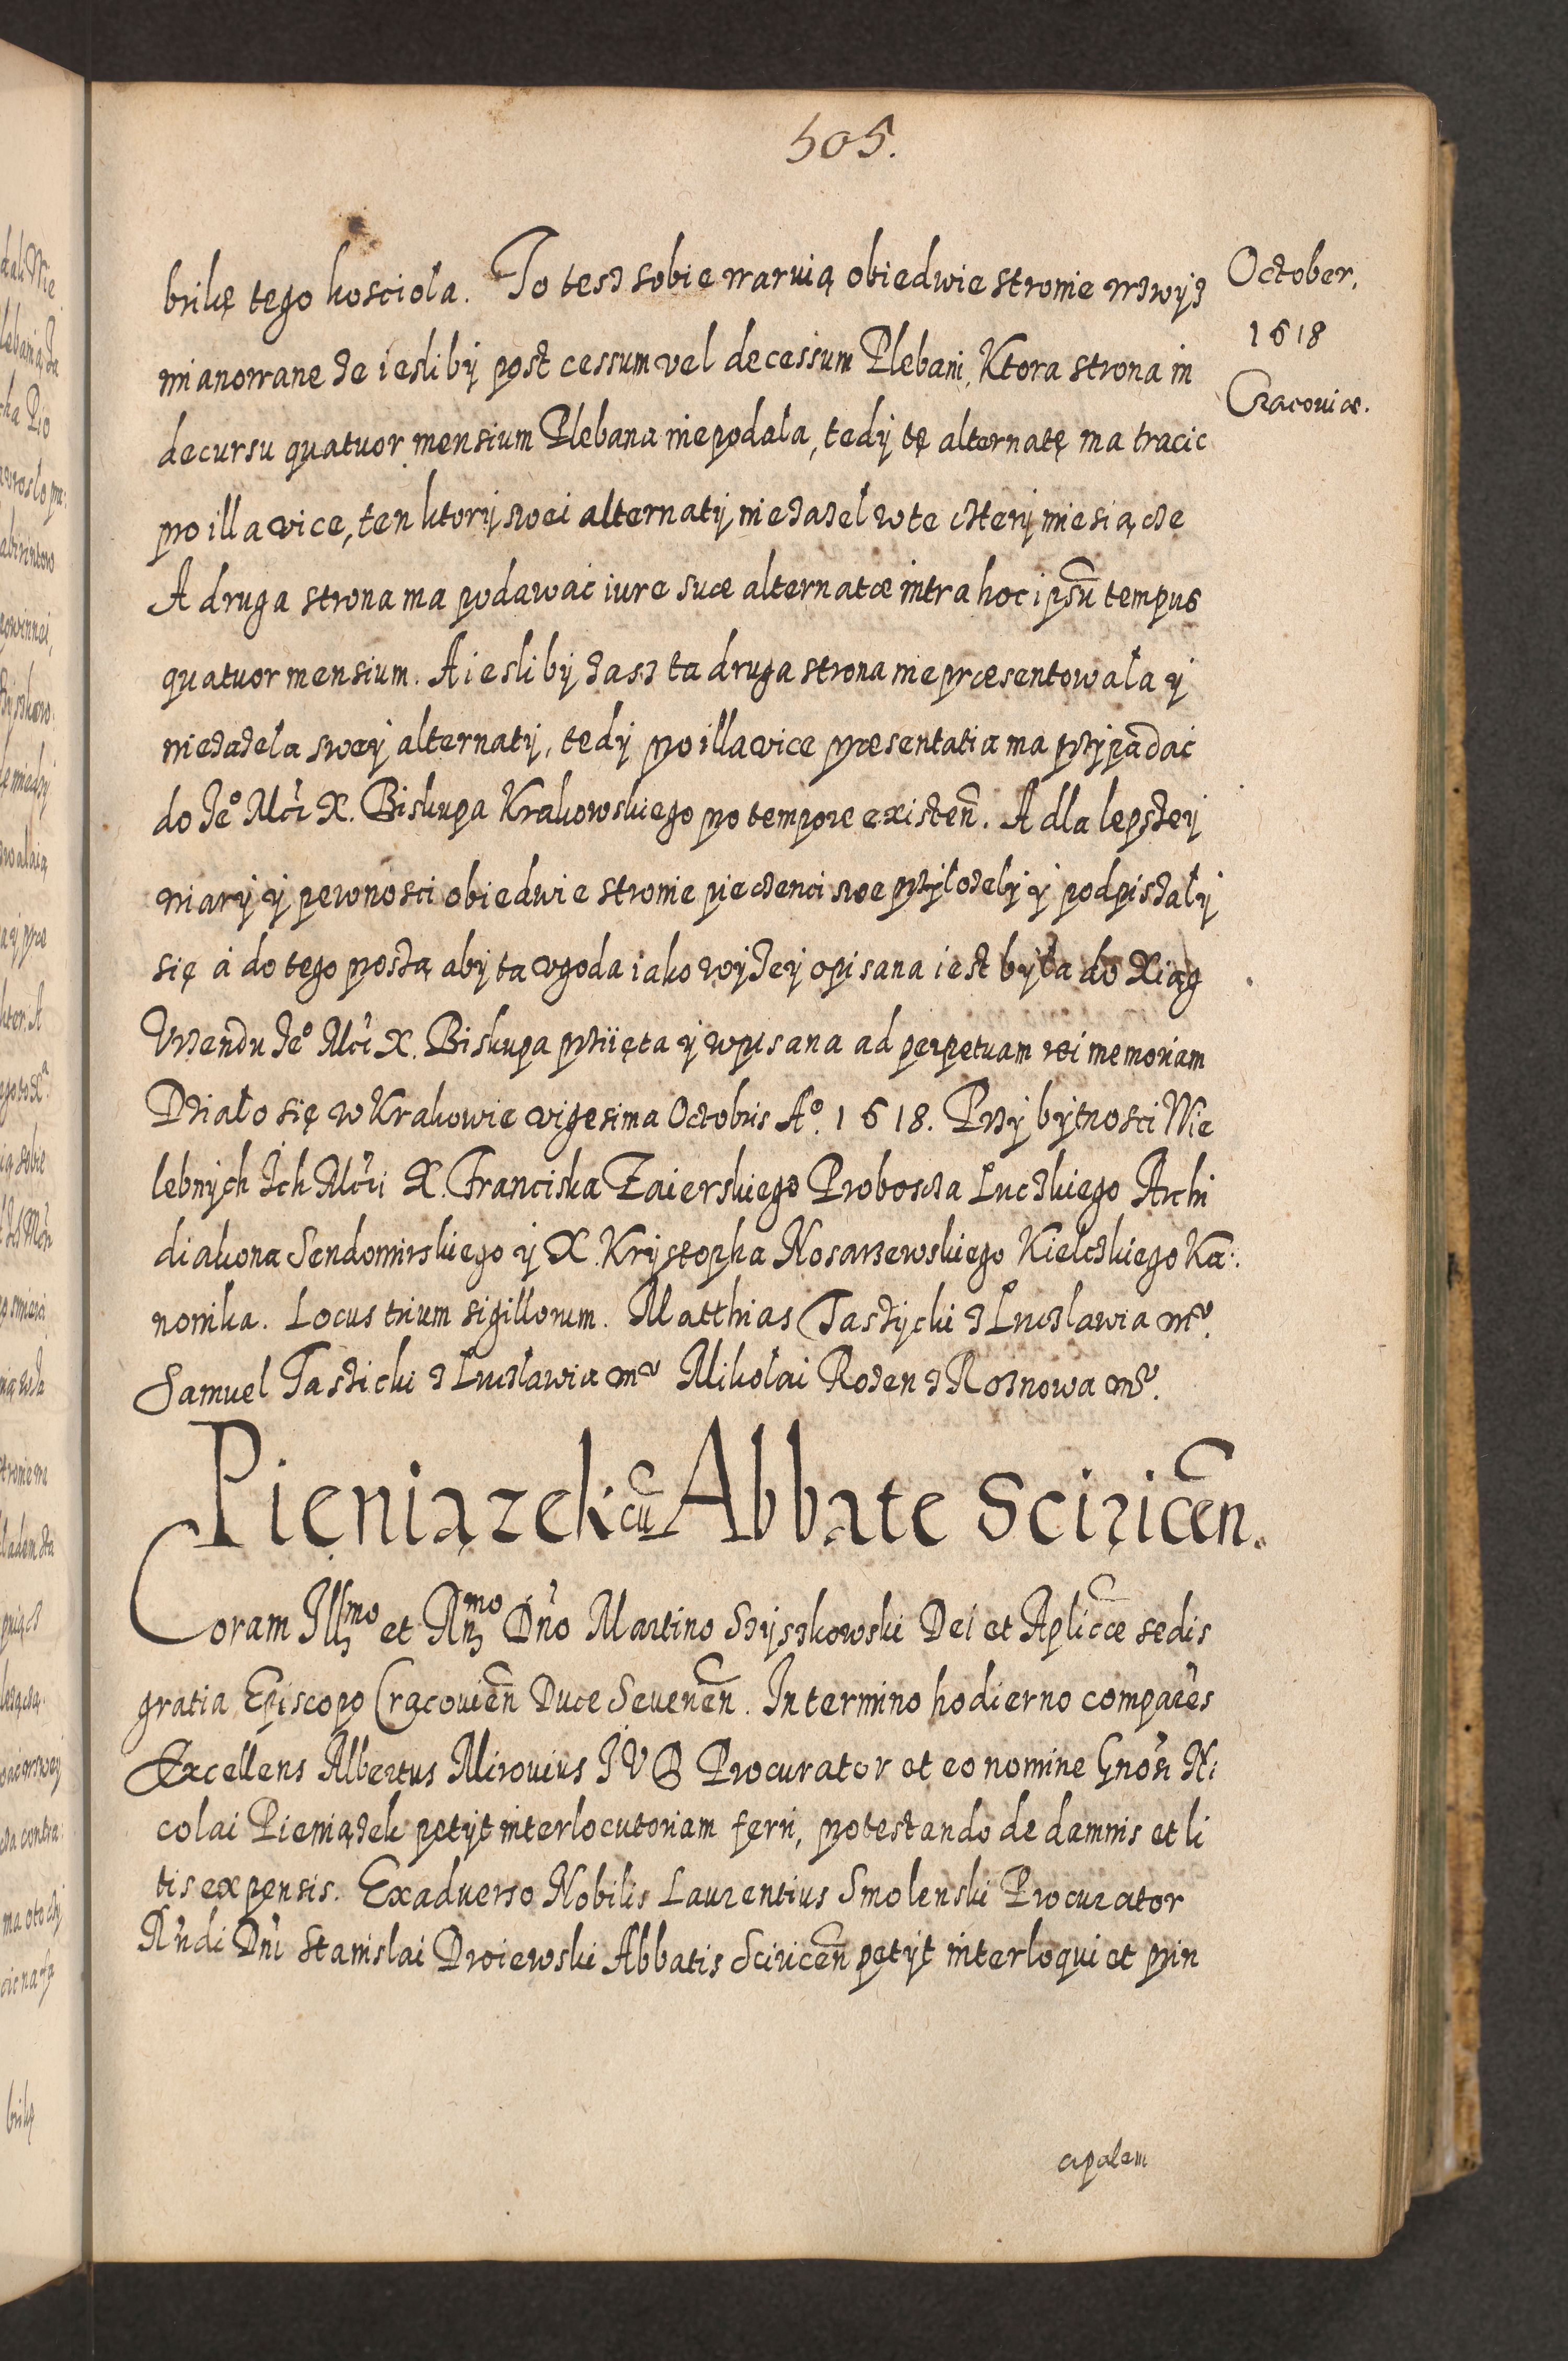 505.
October,
1618
Cracouiæ.
brikę tego kosciola. To tesz sobie waruią obiedwie stronie wzwyż
mianowane że iesliby post cessum vel decessum Plebani, Ktora strona in
decursu quatuor mensium Plebana niepodała, tedy tę alternatę ma tracic
pro illa vice, ten ktory swei alternaty niezażeł w te cztery miesiącze
A druga strona ma podawać iure suæ alternatæ intra hoc ipsũ tempus
quatuor mensium. A iesliby zasz ta druga strona nie præsentowała y
niezażeła swey alternaty, tedy pro illa vice præsentatia ma przypadać
do Jeº Mći X. Biskupa Krakowskiego pro tempore existeñ. A dla lepszey
wiary y pewnosci obiedwie stronie pieczenci swe przyłożely y podpiszały
się á do tego proszą aby ta vgoda iako wyżey opisana iest była do Xiąg
Vrzendu Jeº Mći X. Biskupa prziięta y wpisana ad perpetuam rei memoriam
Działo się w Krakowie vigesima Octobris Aº. 1618. Przy bytnosci Wie
lebnych Ich Mći X. Franciska Zaierskiego Proboscza Luczkiego Archi
diakona Sendomirskiego y X. Krystopha Nosarzewskiego Kielczkiego Ka:
nonika. Locus trium sigillorum. Matthias Taszycki z Luczlawia mp.
Samuel Taszicki z Luczlawia mp Mikolai Rożen z Roznowa mp.
Pieniązek cũ Abbate Sciricẽn.
Coram Illmo et Rnmo Dño Martino Szyszkowski Dei et Aplicæ sedis
gratia Episcopo Cracouieñ Duce Seuerieñ. In termino hodierno compares
Excellens Albertus Mirouius J V D Procurator et eo nomine Gnosi Ni
colai Pieniążek petyt interlocutoriam ferri, protestando de damnis et li
tis expensis. Ex aduerso Nobilis Laurentius Smolenski Procurator
Rndi Dni Stanislai Droiewski Abbatis Sciriceñ petyt interloqui et prin
cipalem